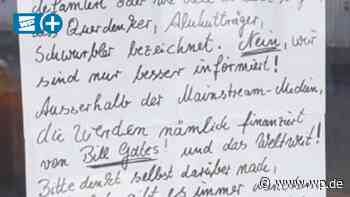 WP +
oder wie
als Querdenker, Aluhutträger,
Schwurbler bezeichnet. Nein, wir
sind nur besser informiert!
Ausserhalb der Mainstream-Medien,
die werden nämlich finanziert
von Bill Gates! und das Weltweit!
Bitte denkt selbst darüber nach,
es immer
© www.wp.de